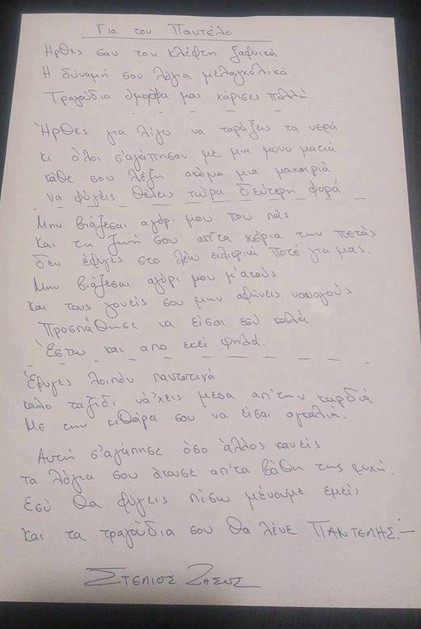 Για τον Παντέλο
Ήρθες σαν τον κλέφτη ξαφνικά
Η δύναμή σου λόγια μελαγχολικά
Τραγούδια όμορφα μας χάρισες πολλά
Ήρθες για λίγο να ταράξεις τα νερά
κι όλοι σ'αγάπησαν με μια μόνο ματιά
κάθε σου λέξη ακόμα μια μαχαιριά
να φύγεις θέλεις τώρα δεύτερη φορά
Μην βιάζεσαι αγόρι μου που πας
Και τη ζωή σου απ'τα χέρια την πετάς
δεν έφυγες στο λέω ειλικρινά ποτέ για μας.
Μην βιάζεσαι αγόρι μου μ'ακούς
Και τους γονείς σου μην αφήνεις ναυαγούς
Προσπάθησε να είσαι εσύ καλά
Έστω και απο εκεί ψηλά.
Έφυγες λοιπόν παντοτινά
καλο ταξίδι νά'χεις μέσα απ'την καρδιά
Με την κιθάρα σου να είσαι αγκαλιά.
Αυτή σ'αγάπησε όσο άλλος κανείς
τα λόγια σου άκουσε απ'τα βάθη της ψυχής
Εσύ θα φύγεις πίσω μένουμε εμείς
Και τα τραγούδια σου θα λένε ΠΑΝΤΕΛΗΣ.-
ΣΤΕΛΙΟΣ